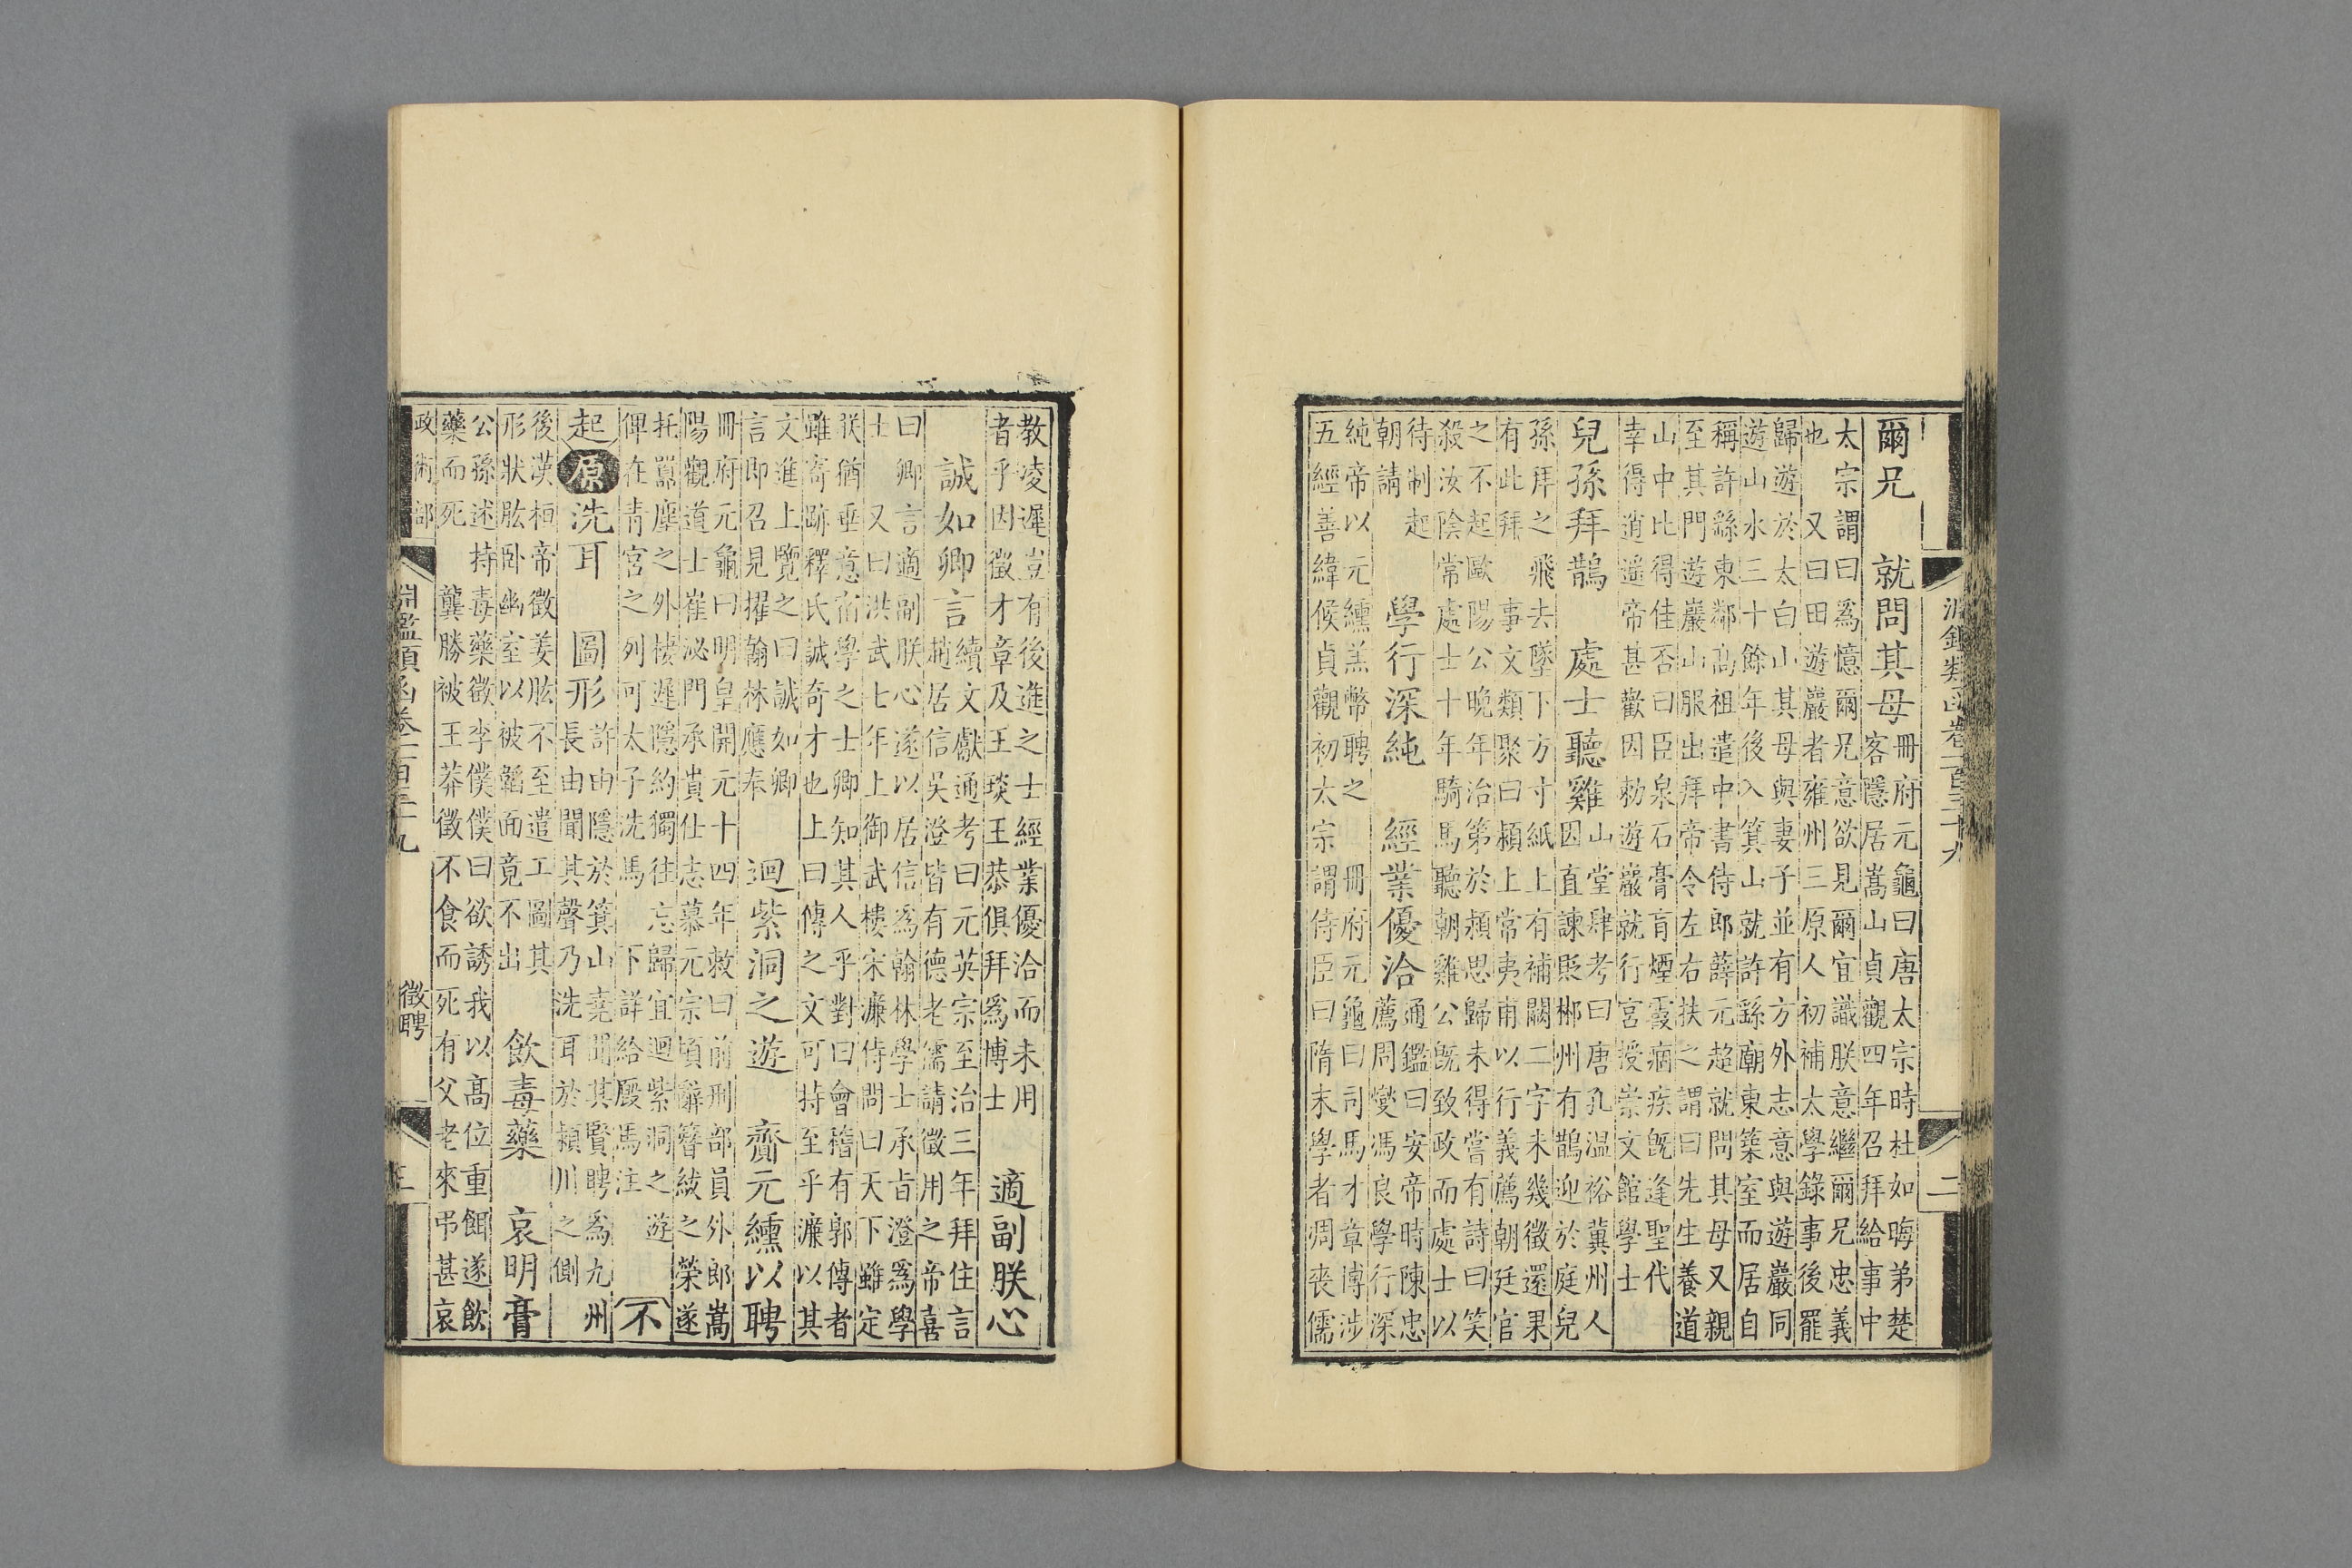 爾兄　就問其母
冊府元龜曰唐太宗時杜如晦弟楚
客隱居嵩山貞觀四年召拜給事中
太宗謂曰爲憶爾兄意欲見爾宜識朕意繼爾兄忠義
也　又曰田遊巖者雍州三原人初補太學錄事後罷
歸遊於太白山其母與妻子並有方外志意與遊巖同
遊山水三十餘年後入箕山就許繇廟東築室而居自
稱許繇東鄰高祖遣中書侍郎薛元超就問其母又親
至其門遊巖山服出拜帝令左右扶之謂曰先生養道
山中比得佳否曰臣泉石膏肓煙霞痼疾旣逢聖代
幸得逍遥帝甚歡因勑遊巖就行宮授崇文館學士
兒孫拜鵲　處士聽雞
山堂肆考曰唐孔溫裕冀州人
因直諫貶郴州有鵲迎於庭兒
孫拜之飛去墜下方寸紙上有補闕二字未幾徵還果
有此拜　事文類聚曰潁上常夷甫以行義薦朝廷官
之不起歐陽公晚年治第於潁思歸未得嘗有詩曰笑
殺汝陰常處士十年騎馬聽朝雞公旣致政而處士以
待制起
朝請
學行深純　經業優洽
通鑑曰安帝時陳忠
薦周燮馮良學行深
純帝以元纁羔幣聘之　冊府元龜曰司馬才章博涉
五經善緯候貞觀初太宗謂侍臣曰隋末學者凋喪儒
淵鑑類函卷一百三十九
二
教凌遲豈有後進之士經業優洽而未用
者乎因徵才章及王琰王恭俱拜爲博士
適副朕心
誠如卿言
續文獻通考曰元英宗至治三年拜住言
趙居信吳澄皆有德老儒請徵用之帝喜
曰卿言適副朕心遂以居信爲翰林學士承旨澄爲學
士　又曰洪武七年上御武樓宋濂侍問曰天下雖定
朕猶垂意宿學之士卿知其人乎對曰會稽有郭傳者
雖寄跡釋氏誠奇才也上曰傳之文可持至乎濂以其
文進上覽之曰誠如卿
言即召見擢翰林應奉
迴紫洞之遊　齎元纁以聘
冊府元龜曰明皇開元十四年敕曰前刑部員外郎嵩
陽觀道士崔泌門承貴仕志慕元宗頃辭簪紱之榮遂
托囂塵之外棲遲隱約獨往忘歸宜迴紫洞之遊
俾在青宮之列可太子洗馬　下詳給廄馬注
不
起　原　洗耳　圖形
許由隱於箕山堯聞其賢聘爲九州
長由聞其聲乃洗耳於潁川之側
後漢桓帝徵姜肱不至遣工圖其
形狀肱卧幽室以被韜面竟不出
飲毒藥　哀明膏
公孫述持毒藥徵李僕僕曰欲誘我以高位重餌遂飲
藥而死　龔勝被王莽徵不食而死有父老來弔甚哀
政術部
淵鑑類函卷一百三十九
徵聘
三